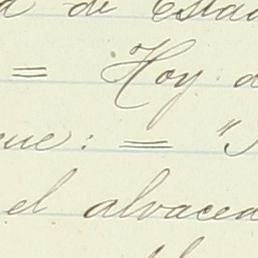 de Estad
= Hoy d
ue: = "
el alvacea